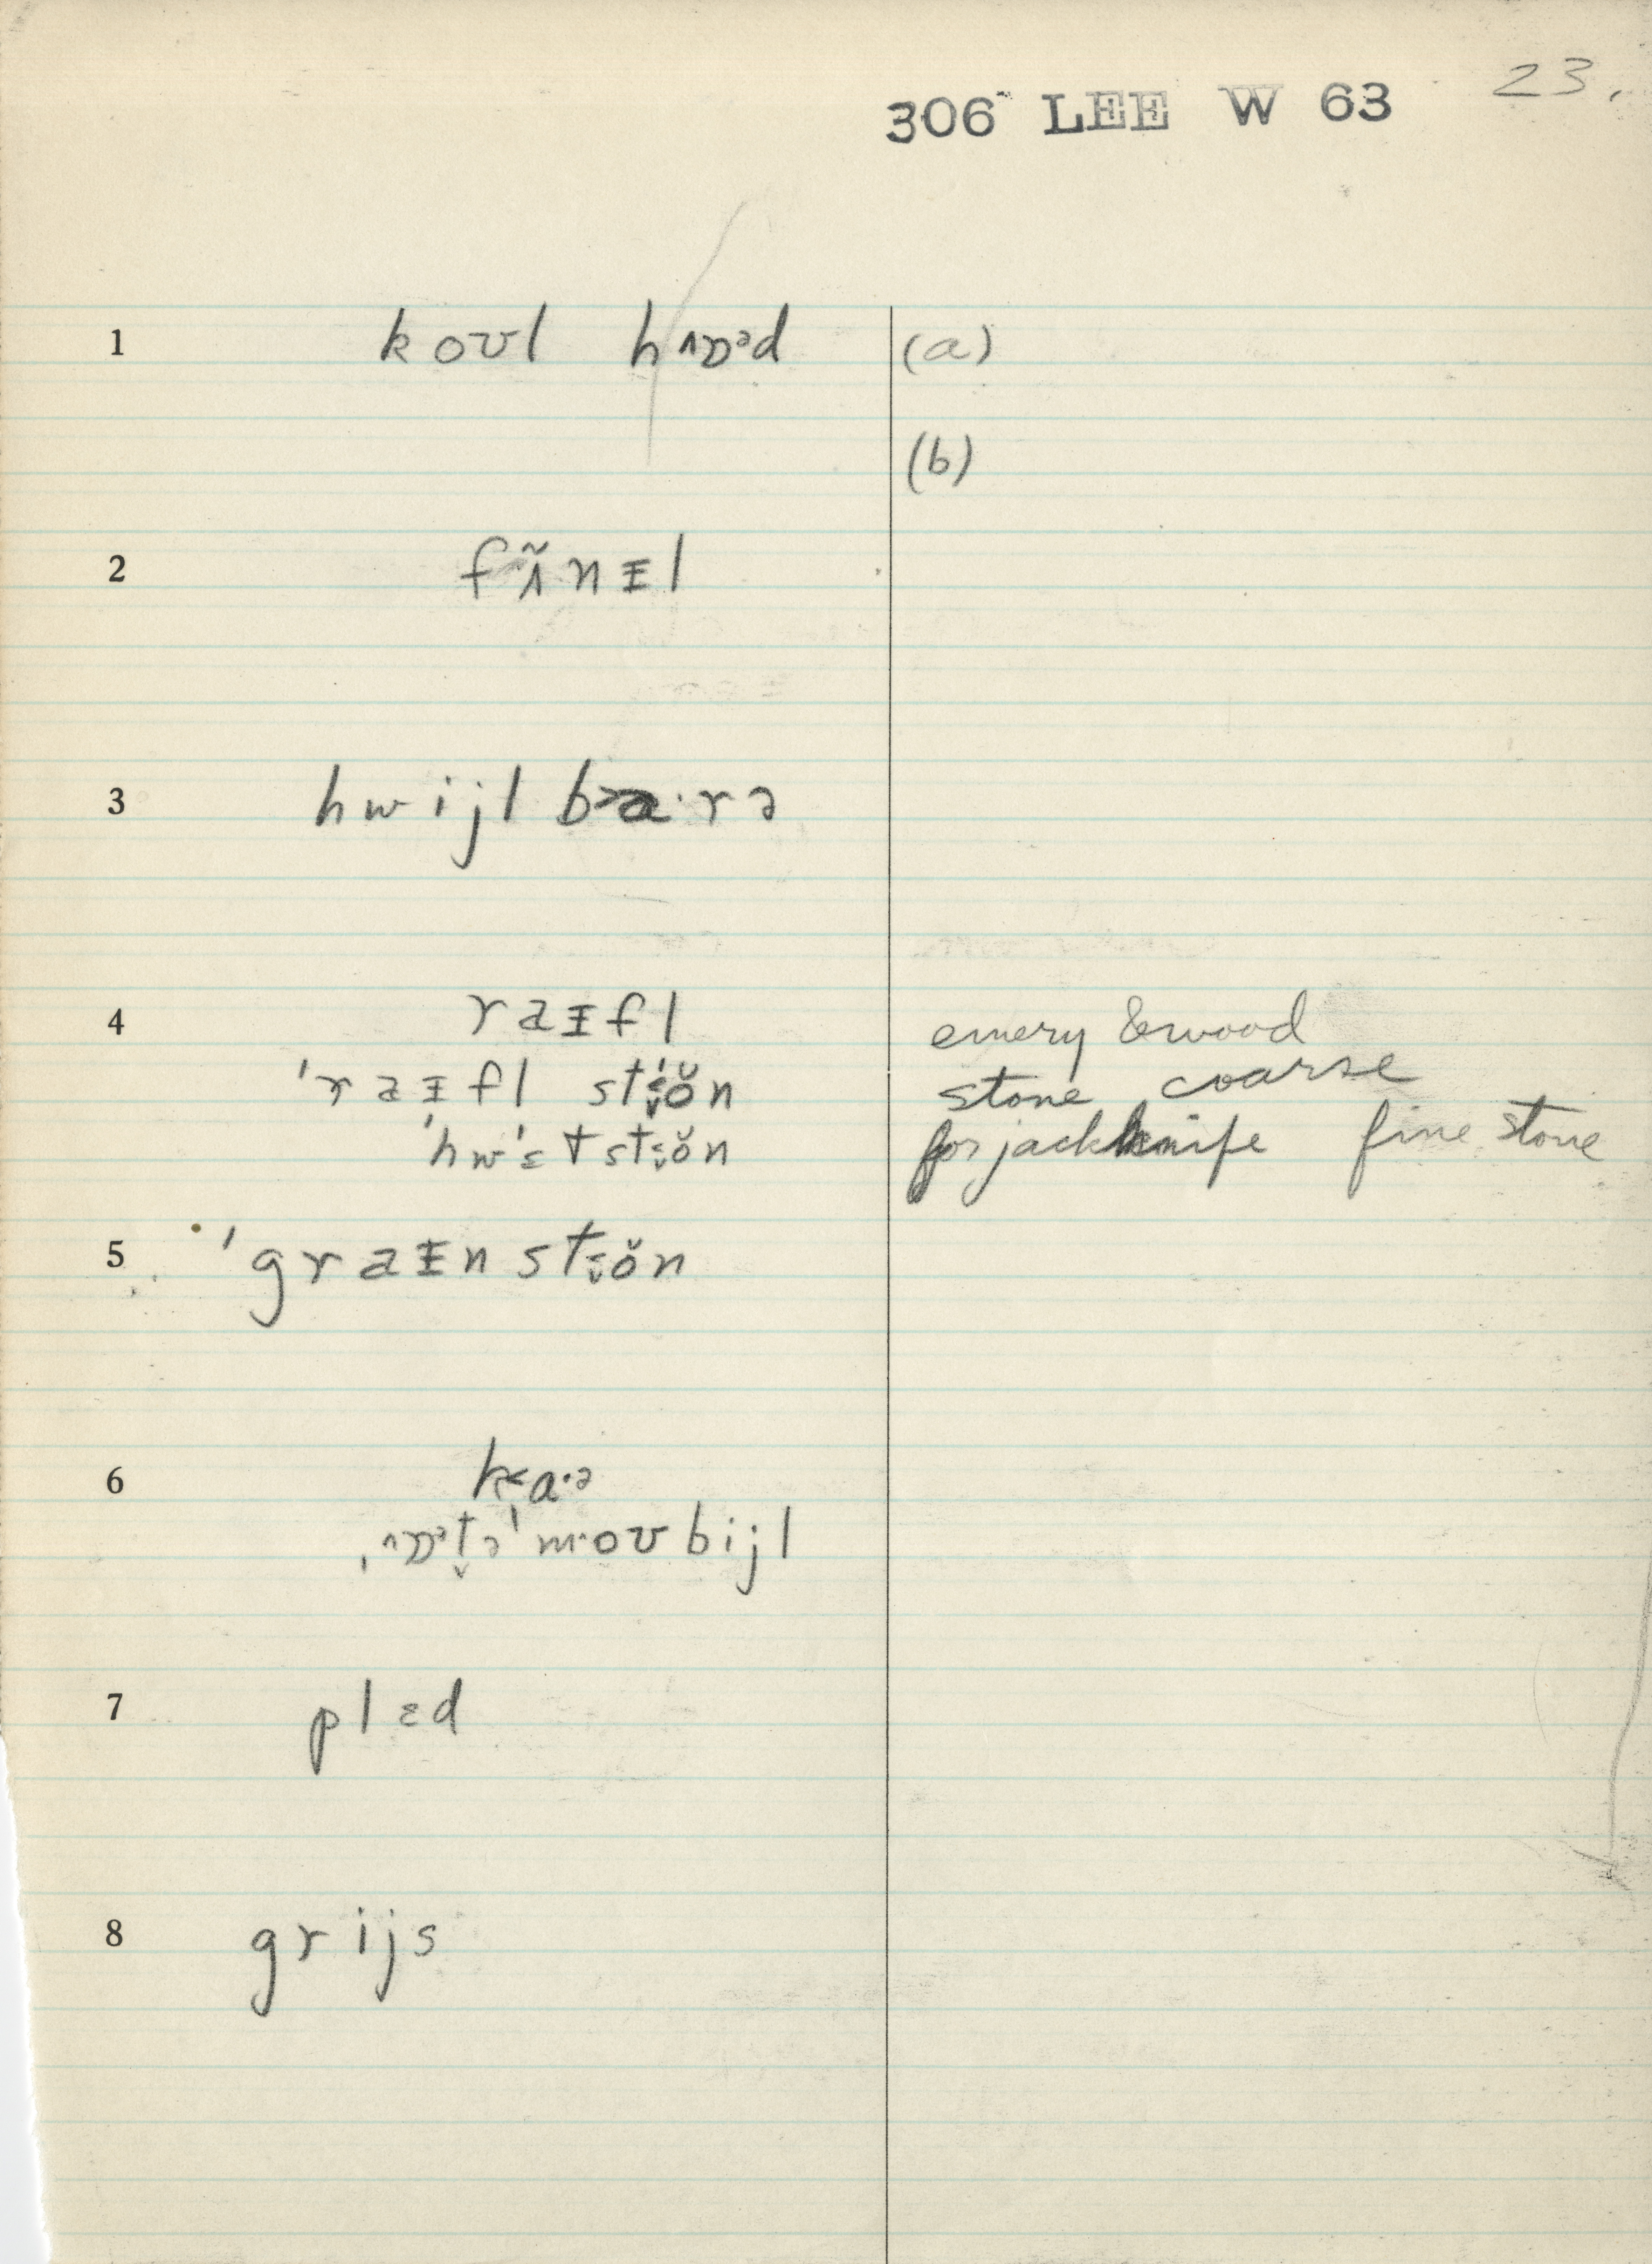 23.
306 LEE W 63
1 koʊl hʌɒᵊd (a)
(b)
2 fʌ̃nɪ̵l
3 hwijl ba·rə
4 raɪ̵fl emery & wood
ˈraɪ̵fl stɵ̆n stone coarse
ˈhwɛtstɵ̆n for jackknife fine stone
5 ˈgraɪ̵nstɵ̆n
6 ka·ə
ˌʌɒᵊt̬əˈmoʊbijl
7 plɛd
8 grijs